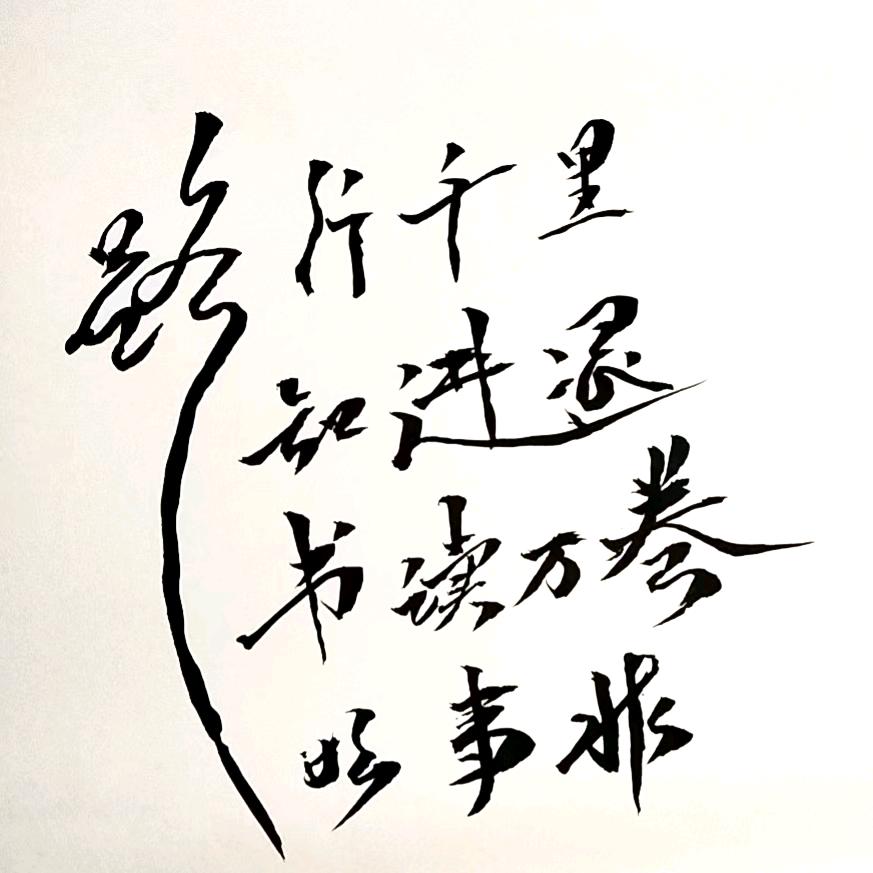 路行千里
知进退
书读万卷
好事非